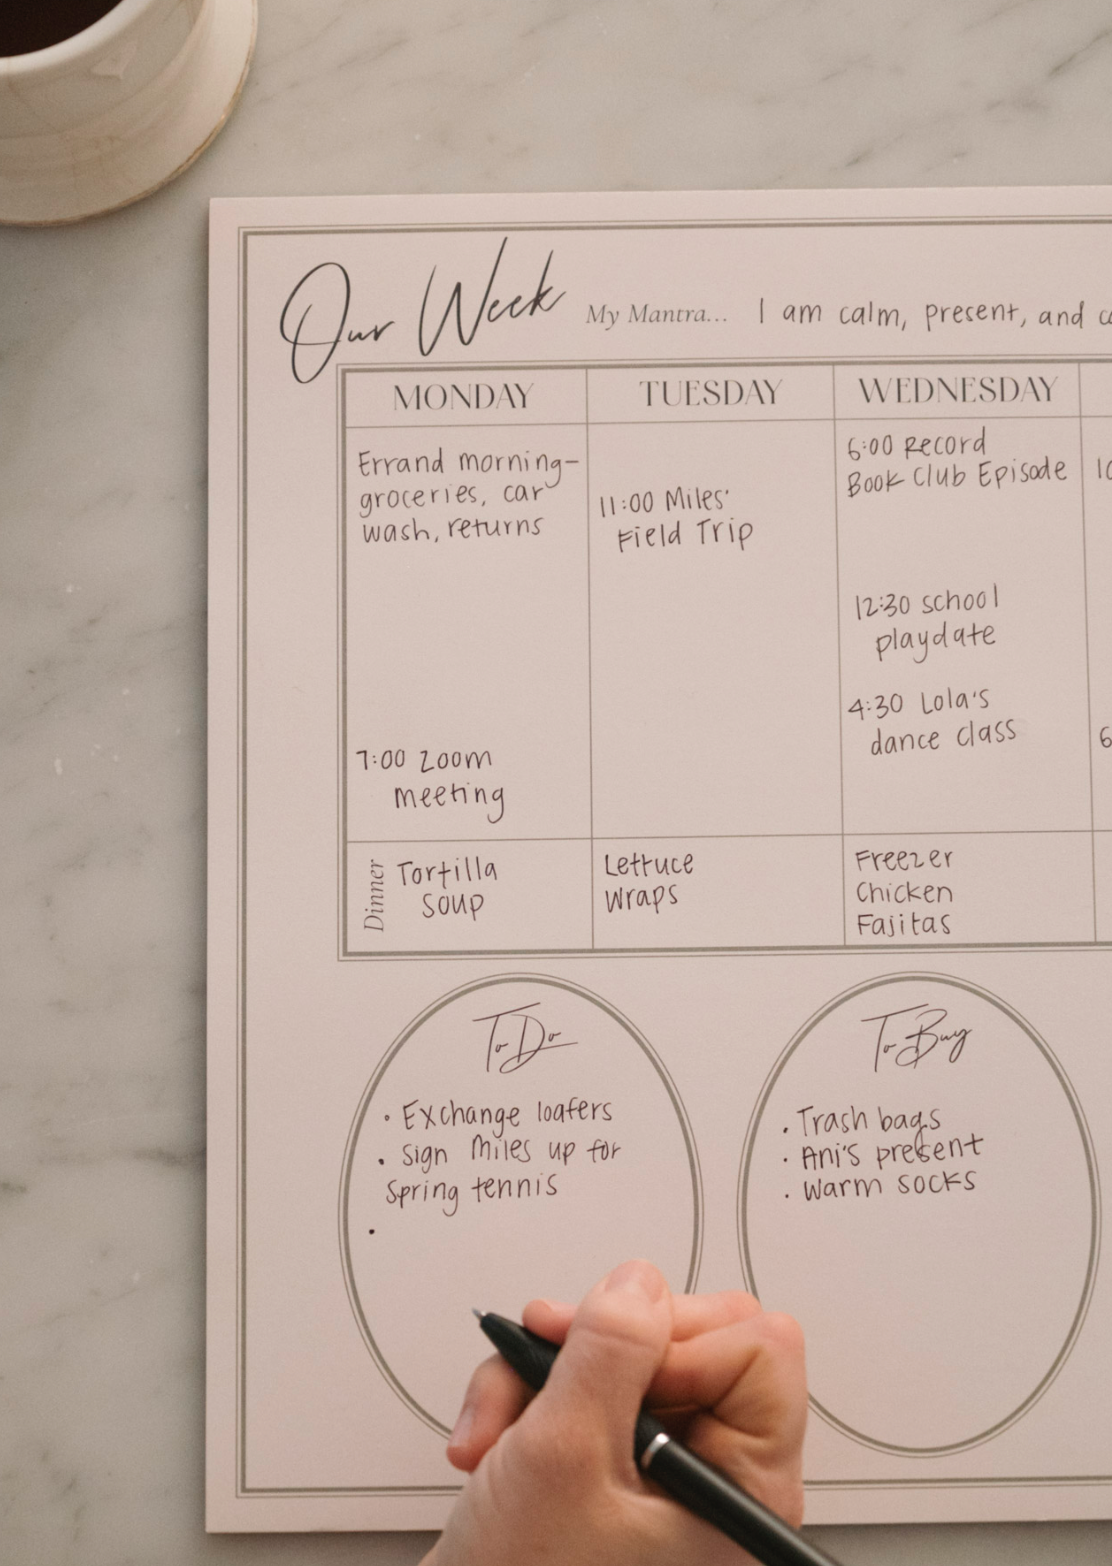 Our Week
My Mantra... I am calm, present, and
MONDAY
Errand morning-
groceries, car
wash, returns
7:00 Zoom
meeting
TUESDAY
11:00 Miles'
Field Trip
WEDNESDAY
6:00 Record
Book Club Episode
12:30 school
playdate
4:30 Lola's
dance class
Dinner
Tortilla
Soup
Lettuce
Wraps
Freezer
Chicken
Fajitas
To Do
• Exchange loafers
• Sign Miles up for
Spring tennis
•
To Buy
• Trash bags
• Ani's present
• Warm socks